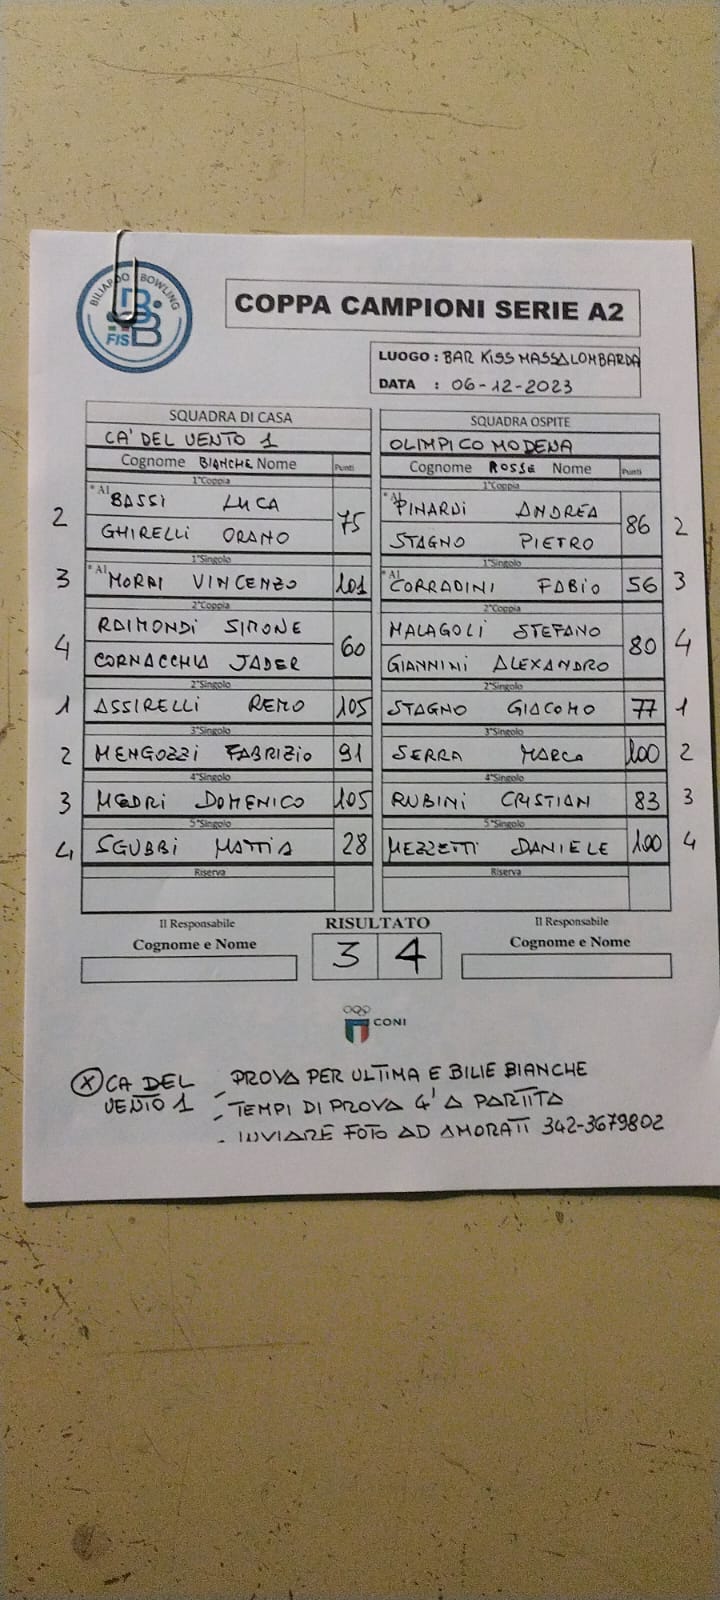 BILIARDO BOWLING
FISBB
COPPA CAMPIONI SERIE A2
LUOGO : BAR KISS MASSALOMBARDA
DATA : 06-12-2023
SQUADRA DI CASA SQUADRA OSPITE
CA' DEL VENTO 1 OLIMPICO MODENA
Cognome BIANCHE Nome Punti Cognome ROSSE Nome Punti
1°Coppia 1°Coppia
2 * A1 BASSI LUCA 75 * A1 PINARDI ANDREA 86 2
GHIRELLI ORANO STAGNO PIETRO
1°Singolo 1°Singolo
3 * A1 MORRI VINCENZO 101 * A1 CORRADINI FABIO 56 3
2°Coppia 2°Coppia
4 RAIMONDI SIMONE 60 MALAGOLI STEFANO 80 4
CORNACCHIA JADER GIANNINI ALEXANDRO
2°Singolo 2°Singolo
1 ASSIRELLI REMO 105 STAGNO GIACOMO 77 1
3°Singolo 3°Singolo
2 MENGOZZI FABRIZIO 91 SERRA MARCO 100 2
4°Singolo 4°Singolo
3 MEDRI DOMENICO 105 RUBINI CRISTIAN 83 3
5°Singolo 5°Singolo
4 SGUBBI MATTIA 28 MEZZETTI DANIELE 100 4
Riserva Riserva
Il Responsabile RISULTATO Il Responsabile
Cognome e Nome 3 4 Cognome e Nome
CONI
(X) CA DEL VENTO 1 - PROVA PER ULTIMA E BILIE BIANCHE
- TEMPI DI PROVA 4' A PARTITA
- INVIARE FOTO AD AMORATI 342-3679802